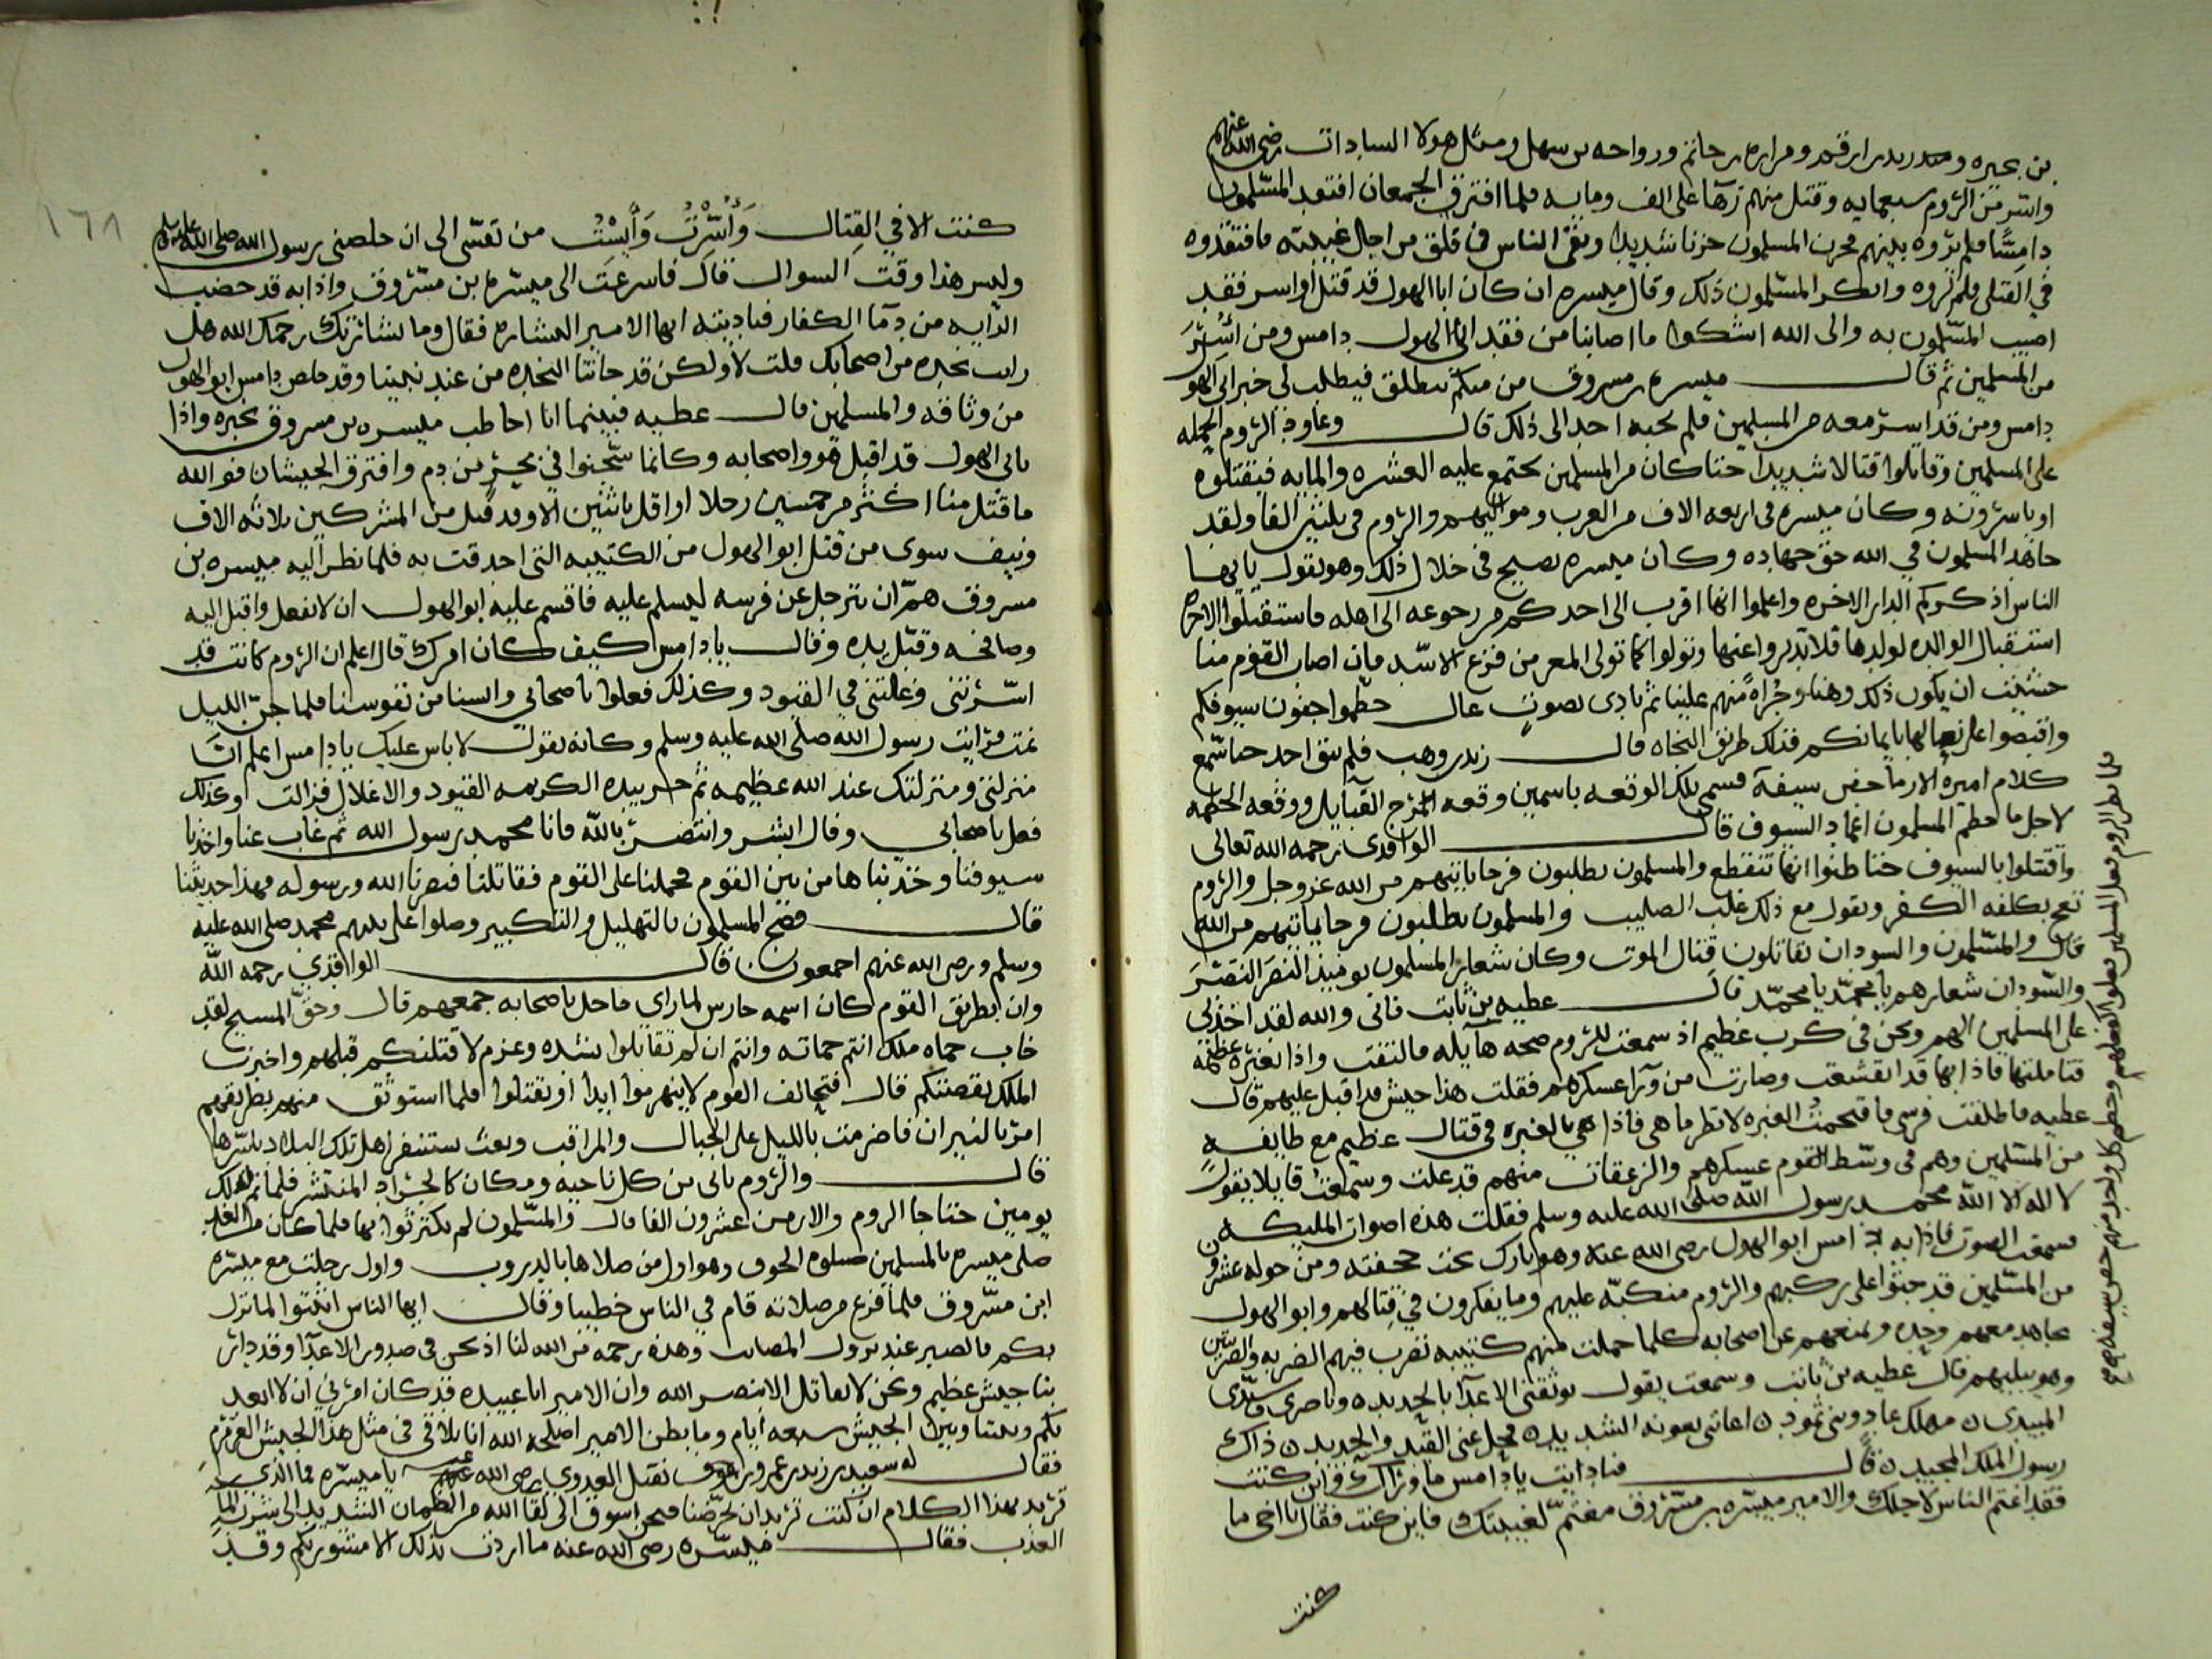 بن بحيره و زيد بن ارقم ومراره بن حاتم ورواحه بن سهل ومثل هولا السادات رضي الله عنهم
واسر من الروم سبعمايه وقتل منهم زهآ على الف ومايه فلما افترق الجمعان افتقد المسلمون
دامسًا فلم يروه بينهم فحزن المسلمون حزنا شديدا وبقى الناس في قلق من اجل غيبته فافتقدوه
في القتلى فلم يروه وانكر المسلمون ذلك وقال ميسره ان كان ابا الهول قد قتل او اسر فقد
اصيب المسلمون به والى الله اشكوا ما اصابنا من فقد ابى الهول دامس ومن اُسِرَ
من المسلمين ثم قال ميسره بن مسروق من منكم ينطلق فيطلب لى خبر ابى الهول
دامس ومن قد اسر معه من المسلمين فلم يجبه احد الى ذلك قال وعاود الروم الحمله
على المسلمين وقاتلوا قتالا شديدا حتا كان من المسلمين يجتمع عليه العشره والمايه فيقتلوه
او ياسرونه وكان ميسره فى اربعه الاف من العرب ومواليهم والروم فى ثلثين الفا ولقد
جاهد المسلمون في الله حق جهاده وكان ميسره يصيح فى خلال ذلك وهو يقول يا ايها
الناس اذكركم الدار الاخره واعلموا انها اقرب الى احدكم من رجوعه الى اهله فاستقبلوا الاخره
استقبال الوالده لولدها فلا تدبروا عنها وتولوا كما تولى المعز من فزع الاسد فان اصاب القوم منا
خشيت ان يكون ذلك وهنا وجُراهً منهم علينا ثم نادى بصوتٍ عال حطموا جفون سيوفكم
واقبضوا على نصالها بايمانكم فذلك طريق النجاه قال زيد بن وهب فلم يبق احد حتا سمع
كلام اميره الا رما جفن سيفه فسمى تلك الوقعه باسمين وقعه المرج القبايل ووقعه الحطمه
لاجل ما حطم المسلمون اغماد السيوف قال الواقدى رحمه الله تعالى
واقتتلوا بالسيوف حتا ظنوا انها تنقطع والمسلمون يطلبون فرجا ياتيهم من الله عز وجل والروم
تعج بكلمه الكفر ويقول مع ذلك غلب الصليب والمسلمون يطلبون فرجا ياتيهم من الله
قال والمسلمون والسودان يقاتلون قتال الموت وكان شعار المسلمون يوميذ النصر النصر
والسودان شعارهم يا محمد يا محمد قال عطيه بن ثابت فانى والله لقد اخذنى
على المسلمين الهم ونحن فى كرب عظيم اذ سمعت للروم صيحه هآيله فالتفت واذا بغبره عظيمه
فتاملتها فاذا بها قد انقشعت وصارت من ورآ عسكرهم فقلت هذا جيش قد اقبل عليهم قال
عطيه فاطلقت فرسى فاقتحمتُ الغبره لانظر ما هى فاذا هي بالغبره فى قتال عظيم مع طايفه
من المسلمين وهم فى وسط القوم عسكرهم والزعقات منهم قد علت وسمعت قايلا يقول
لا اله الا الله محمد رسول الله صلى الله عليه وسلم فقلت هذه اصوات المليكه
فسمعت الصوت فاذا به دامس ابو الهول رضى الله عنه وهو بارك تحت حجفته ومن حوله عشرون
من المسلمين قد جثوا على ركبهم والروم منكبّه عليهم وما يفكرون في قتالهم وابو الهول
يجاهد معهم وحده ويمنعهم عن اصحابه كلما حملت منهم كتيبه يضرب فيهم الضربه والضربتين
وهو يبليهم قال عطيه بن ثابت وسمعت يقول يوثقنى الاعدآ بالحديده وناصرى وسيدى
المبيدى ن مهلك عاد وبنى ثمود ن اعاننى بعونه الشديده فحل عنى القيد والحديد ن ذاك
رسول الملك المجيد ن قال فناديت يا دامس ما وراك واين كنت
فقد اغتم الناس لاجلك والامير ميسره بن مسروق مغتمّ لغيبتك فاين كنت فقال يا اخى ما
كنت
فلما نظر الروم فعل المسلمين كل واحد منهم جفن سيفه
١٦٨
كنت الا في القِتال وَأُسِرْتُ وَأَيِسْتُ من نفسى الى ان خلصنى رسول الله صلى الله عليه وسلم
وليس هذا وقت السوال قال فاسرعت الى ميسره بن مسروق واذا به قد خضب
الرايه من دمآ الكفار فناديته ايها الامير البشاره فقال وما بشارتك رحمك الله هل
نجده من اصحابك قلت لا ولكن قد جاتنا النجده من عند نبينا وقد خلص دامس ابو الهول
من وثاقه والمسلمين قال عطيه فبينما انا اخاطب ميسره بن مسروق بخبره واذا
بابى الهول قد اقبل هو واصحابه وكانما سبحوا في بحر من دم وافترق الجيشان فوالله
ما قتل منا اكثر من خمسين رجلا او اقل باثنين الا وقد قتل من المشركين ثلاثه الاف
ونيف سوى من قتل ابو الهول من الكتيبه التى احدقت به فلما نظر اليه ميسره بن
مسروق همّ ان يترجل عن فرسه ليسلم عليه فاقسم عليه ابو الهول ان لا تفعل واقبل اليه
وصافحه وقبّل يده وقال يا دامس كيف كان امرك قال اعلم ان الروم كانت قد
اسرتنى وغلتنى في القيود وكذلك فعلوا باصحابي وايسنا من نفوسنا فلما جنّ الليل
نمت فرايت رسول الله صلى الله عليه وسلم وكانه يقول لا باس عليك يا دامس اعلم انّ
منزلتى ومنزلتك عند الله عظيمه ثم جس بيده الكريمه القيود والاغلال فزالت وكذلك
فعل باصحابى وقال ابشر وانتصر بالله فانا محمد رسول الله ثم غاب عنا واخذنا
سيوفنا وجذبناها من بين القوم فحملنا على القوم فقاتلنا فنصرنا الله ورسوله فهذا حديثنا
قال فضج المسلمون بالتهليل والتكبير وصلوا على نبيهم محمد صلى الله عليه
وسلم ورضى الله عنهم اجمعون قال الواقدي رحمه الله
وان بطريق القوم كان اسمه حارس لما راي ما حل باصحابه جمعهم قال وحقّ المسيح لقد
خاب حماه ملك انتم حماته وانتم ان لم تقاتلوا بشده وعزم لا قتلنكم قبلهم واخبرت
الملك بقصتكم قال فتحالف القوم لا ينهزموا ابدا او يقتلوا فلما استوثق منهم بطريقهم
امر بالنيران فاضرمت بالليل على الجبال والمراقب وبعث يستنفر اهل تلك البلاد باسرها
قال والروم ياتى من كل ناحيه ومكان كالجراد المنتشر فلما تم لذلك
يومين حتا جا الروم والارمن عشرون الفا قال والمسلمون لم يكترثوا بها فلما كان من الغد
صلى ميسره بالمسلمين صلوه الخوف وهو اول من صلاها بالدروب واول رجلت مع ميسره
ابن مسروق فلما فرغ من صلاته قام في الناس خطيبا وقال ايها الناس اثبتوا لما نزل
بكم بالصبر عند نزول المصايب وهذه رحمه من الله لنا اذ نحن فى صدور الاعدآ وقد دار
بنا جيش عظيم ونحن لا نقاتل الا بنصر الله وان الامير ابا عبيده قد كان امرني ان لا ابعد
بكم وبيننا وبين الجيش سبعه ايام وما يظن الامير اصلحه الله انا نلاقى فى مثل هذا الجيش العرمرم
فقال له سعيد بن زيد بن عمرو بن نفيل العدوى رضى الله عنه يا ميسره فما الذى
تريد بهذا الكلام ان كنت تريد ان تحرضنا فنحن اسوق الى لقا الله من الظمان الشديد الى شرب المآ
العذب فقال ميسره رضى الله عنه ما اردت بذلك الا مشورتكم وقد